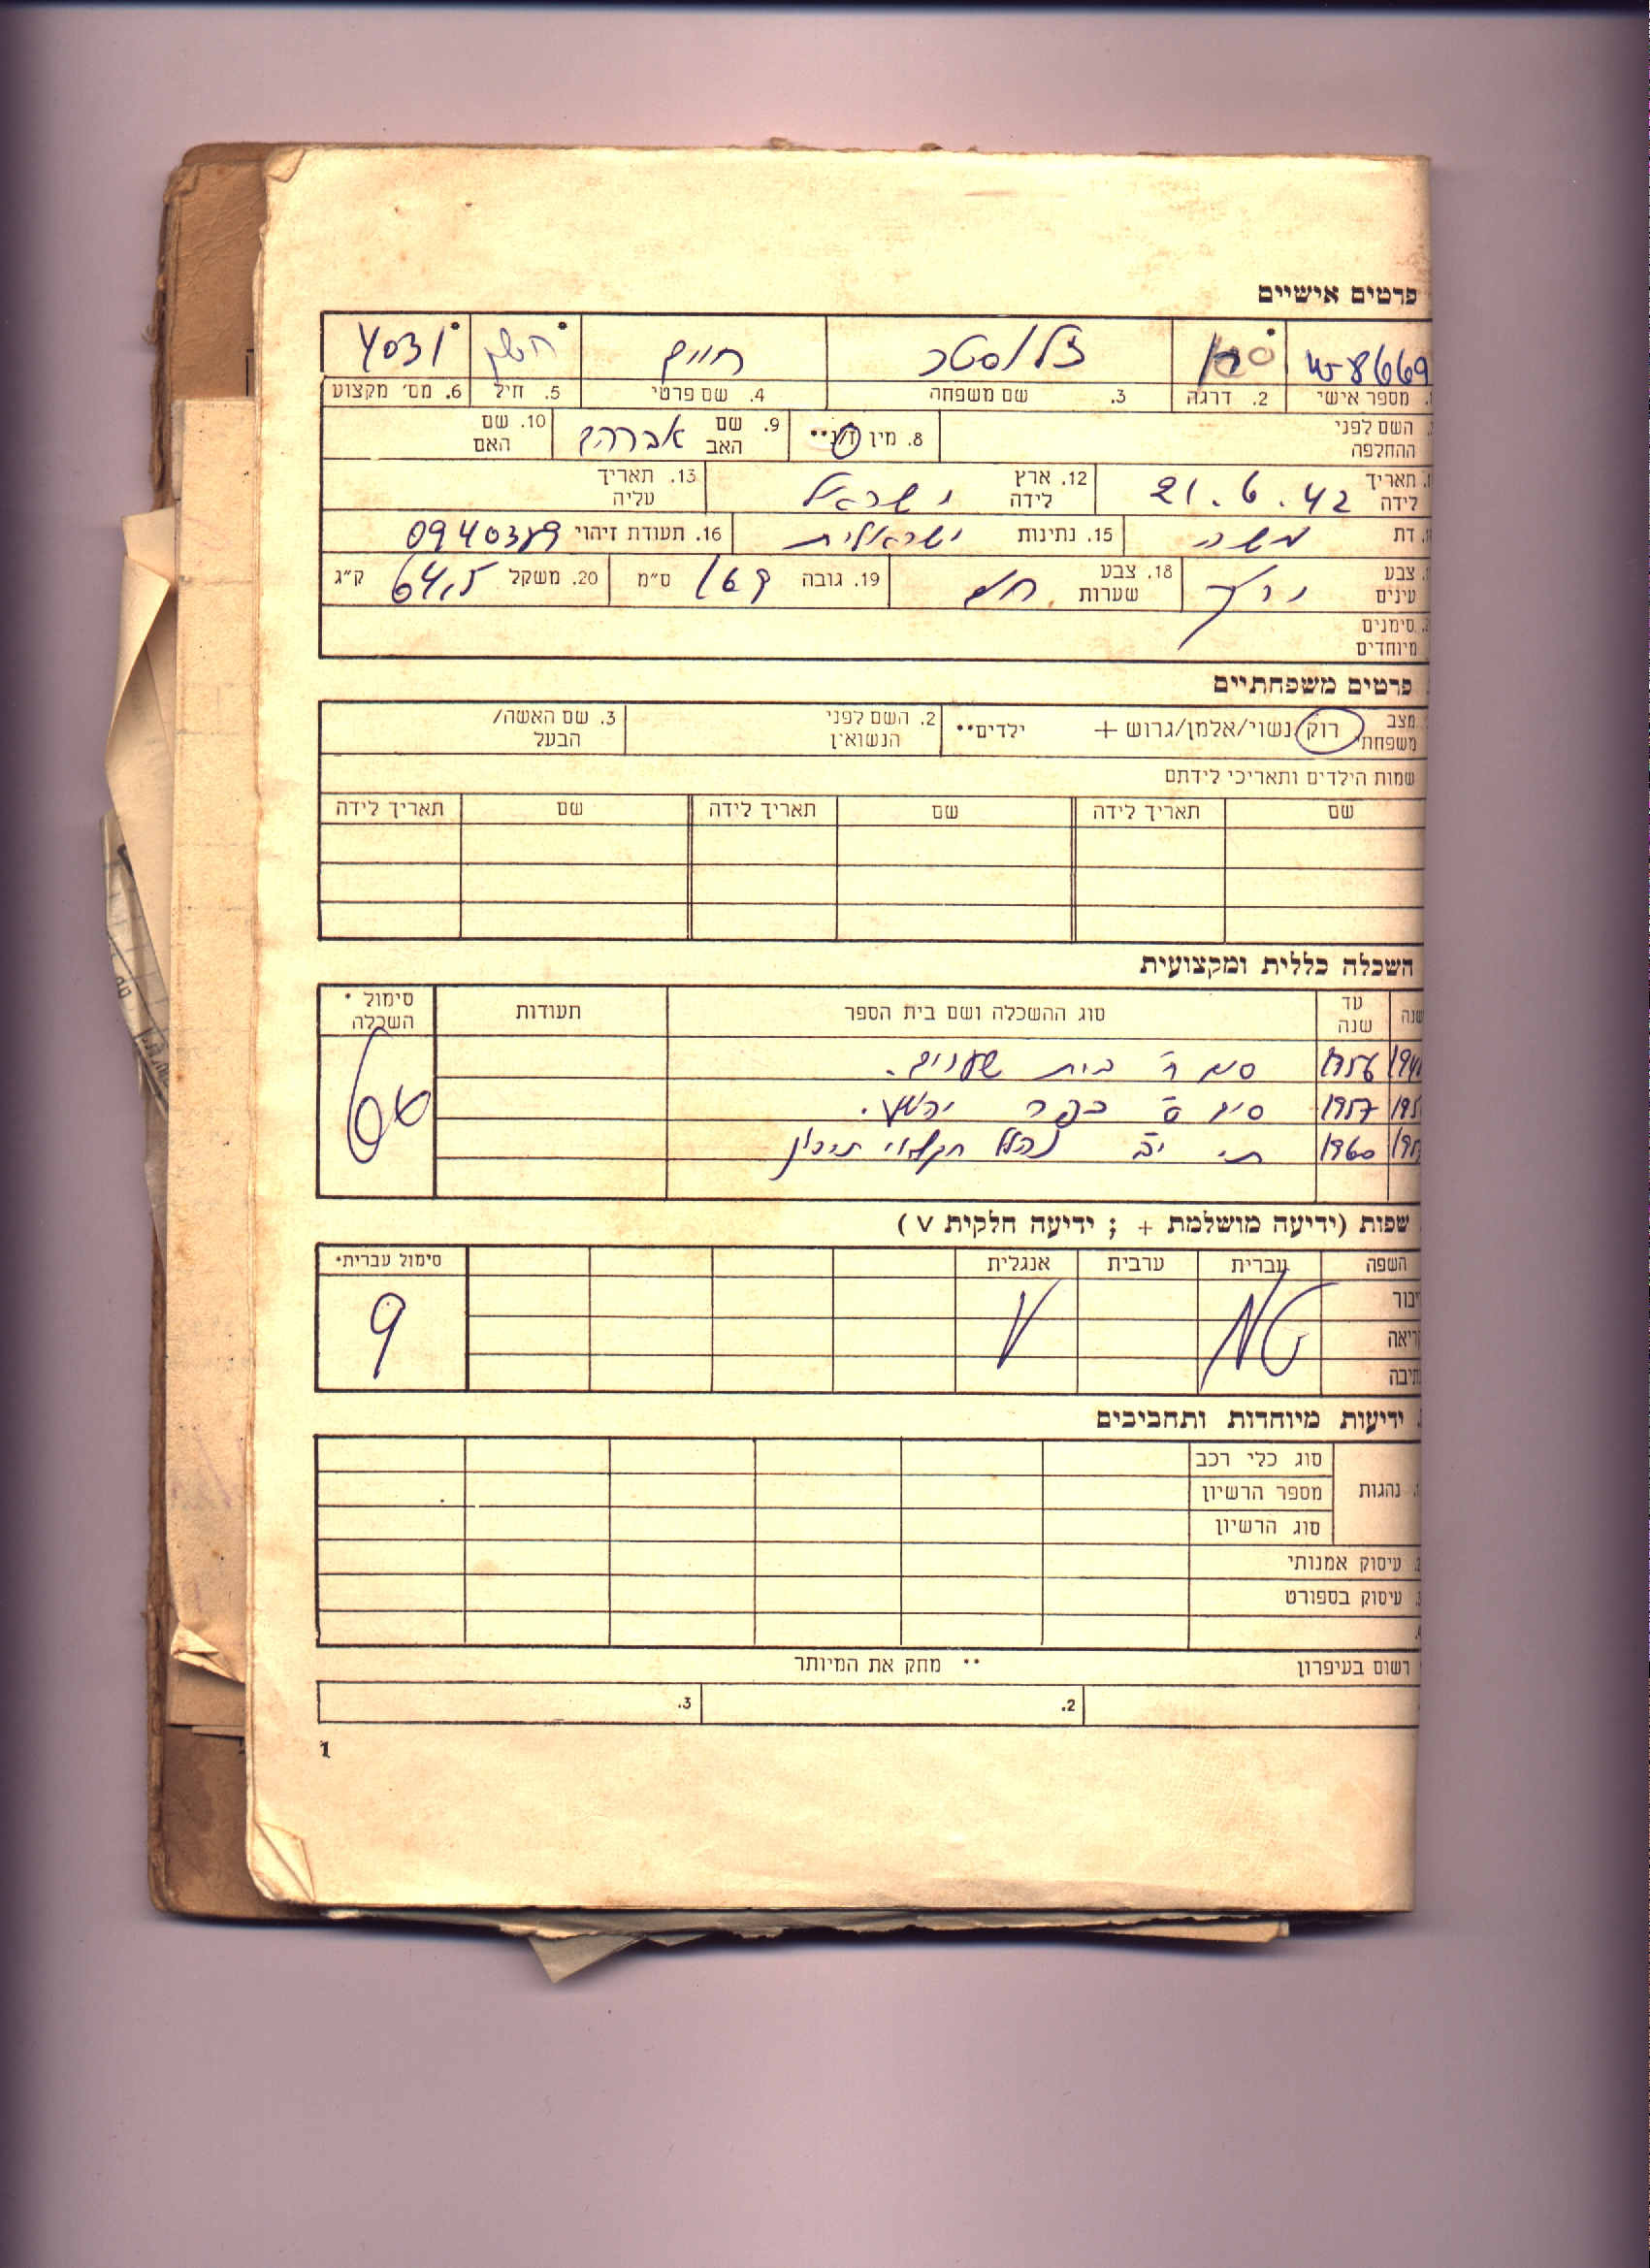 פרטים אישיים
4031 חיים
מספר אישי 2. דרגה 3. שם משפחה 4. שם פרטי 5. חיל 6. מס׳ מקצוע
השם לפני ההחלפה 8. מין ז/נ** 9. שם האב אברהם 10. שם האם
תאריך לידה 21.6.42 12. ארץ לידה ישראל 13. תאריך עליה
דת משה 15. נתינות ישראלית 16. תעודת זיהוי
צבע עינים ירוק 18. צבע שערות חום 19. גובה ס״מ 20. משקל 64,5 ק״ג
סימנים מיוחדים
פרטים משפחתיים
מצב משפחתי רוק/נשוי/אלמן/גרוש + ילדים** 2. השם לפני הנשואין 3. שם האשה/הבעל
שמות הילדים ותאריכי לידתם
שם תאריך לידה שם תאריך לידה שם תאריך לידה
השכלה כללית ומקצועית
שנה עד שנה סוג ההשכלה ושם בית הספר תעודות סימול * השכלה
1956 סים ח׳ בית שערים.
1957 סים ט׳ כפר יהושע.
1960 יב נהלל חקלאי תיכון
שפות (ידיעה מושלמת + ; ידיעה חלקית V)
השפה עברית ערבית אנגלית סימול עברית*
דיבור שא V 9
קריאה
כתיבה
ידיעות מיוחדות ותחביבים
נהגות סוג כלי רכב
מספר הרשיון
סוג הרשיון
עיסוק אמנותי
עיסוק בספורט
רשום בעיפרון ** מחק את המיותר
2. 3.
1